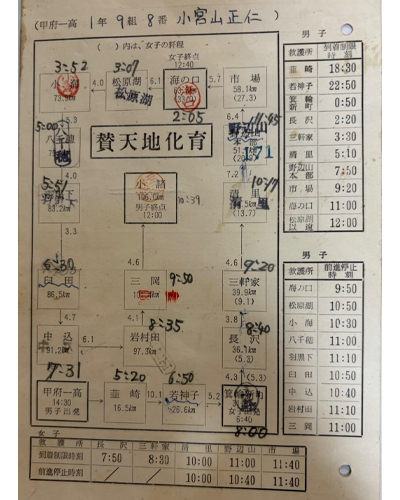 (甲府一高 1年9組8番 小宮山正仁)
( )内は、女子の行程
女子終点
12:40
3:52
3:07
小海
4.0
松原湖
6.1
海の口
市場
58.1km
(27.3)
松原湖
2:05
5:00
6.4
11:45
賛天地化育
171
5:51
小諸
106.0km
男子終点
12:00
10:39
10:17
清里
(13.7)
83.2km
3.3
6:37
臼田
86.5km
三岡
9:50
4.6
9:20
三軒家
39.9km
(9.1)
4.7
4.1
8:35
3.8
8:40
中込
91.2km
6.1
岩村田
97.3km
長沢
36.1km
(5.3)
7:31
5:20
6:50
4.3
(5.3)
甲府一高
14:30
男子出発
韮崎
16.5km
10.1
若神子
26.6km
5.2
女子出発
6:40
8:00
男子
救護所 到着制限時刻
韮崎 18:30
若神子 22:50
箕輪 0:50
長沢 2:20
三軒家 3:30
清里 5:10
野辺山本部 7:50
市場 9:20
海の口 11:00
松原湖以遠 12:00
男子
救護所 前進停止時刻
海の口 9:50
松原湖 10:50
小海 10:30
八千穂 11:00
羽黒下 11:10
臼田 10:50
中込 10:40
岩村田 11:10
三岡 11:00
女子
救護所 長沢 三軒家 清里 野辺山 市場
到着制限時刻 7:50 8:30 10:00 11:00 11:40
前進停止時刻 10:00 10:40 11:40